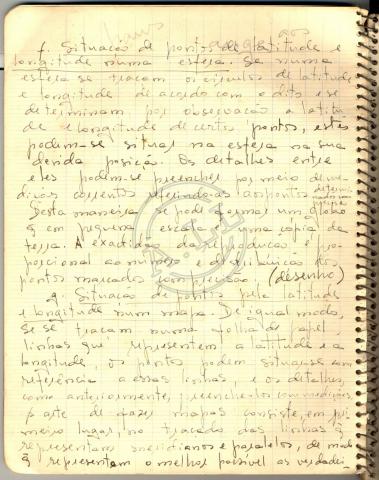 f. Situação de pontos de latitude e
longitude numa esfera. Se numa
esfera se traçam os círculos de latitude
e longitude de acordo com o dito e se
determinam por observação a latitu
de e longitude de certos pontos, estes
podem-se situar na esfera na sua
devida posição. Os detalhes entre
eles podem-se preencher por meio de me
dições correntes referindo-as aos pontos
determi
nados com
Desta maneira se pode formar um globo
q em pequena escala é uma copia da
terra. A exactidão da reprodução é pro
porcional ao numero e distribuição dos
pontos marcados com precisão. (desenho)
g. Situação de pontos pela latitude
e longitude num mapa. De igual modo,
se se traçam numa folha de papel
linhas que representem a latitude e a
longitude, os pontos podem situar-se com
referência a essas linhas, e os detalhes,
como anteriormente, preenchelos com medições.
A arte de fazer mapas consiste, em pri
meiro lugar, no traçado das linhas q
representam meridianos e paralelos, de modo
q representem o melhor possivel as verdadei-